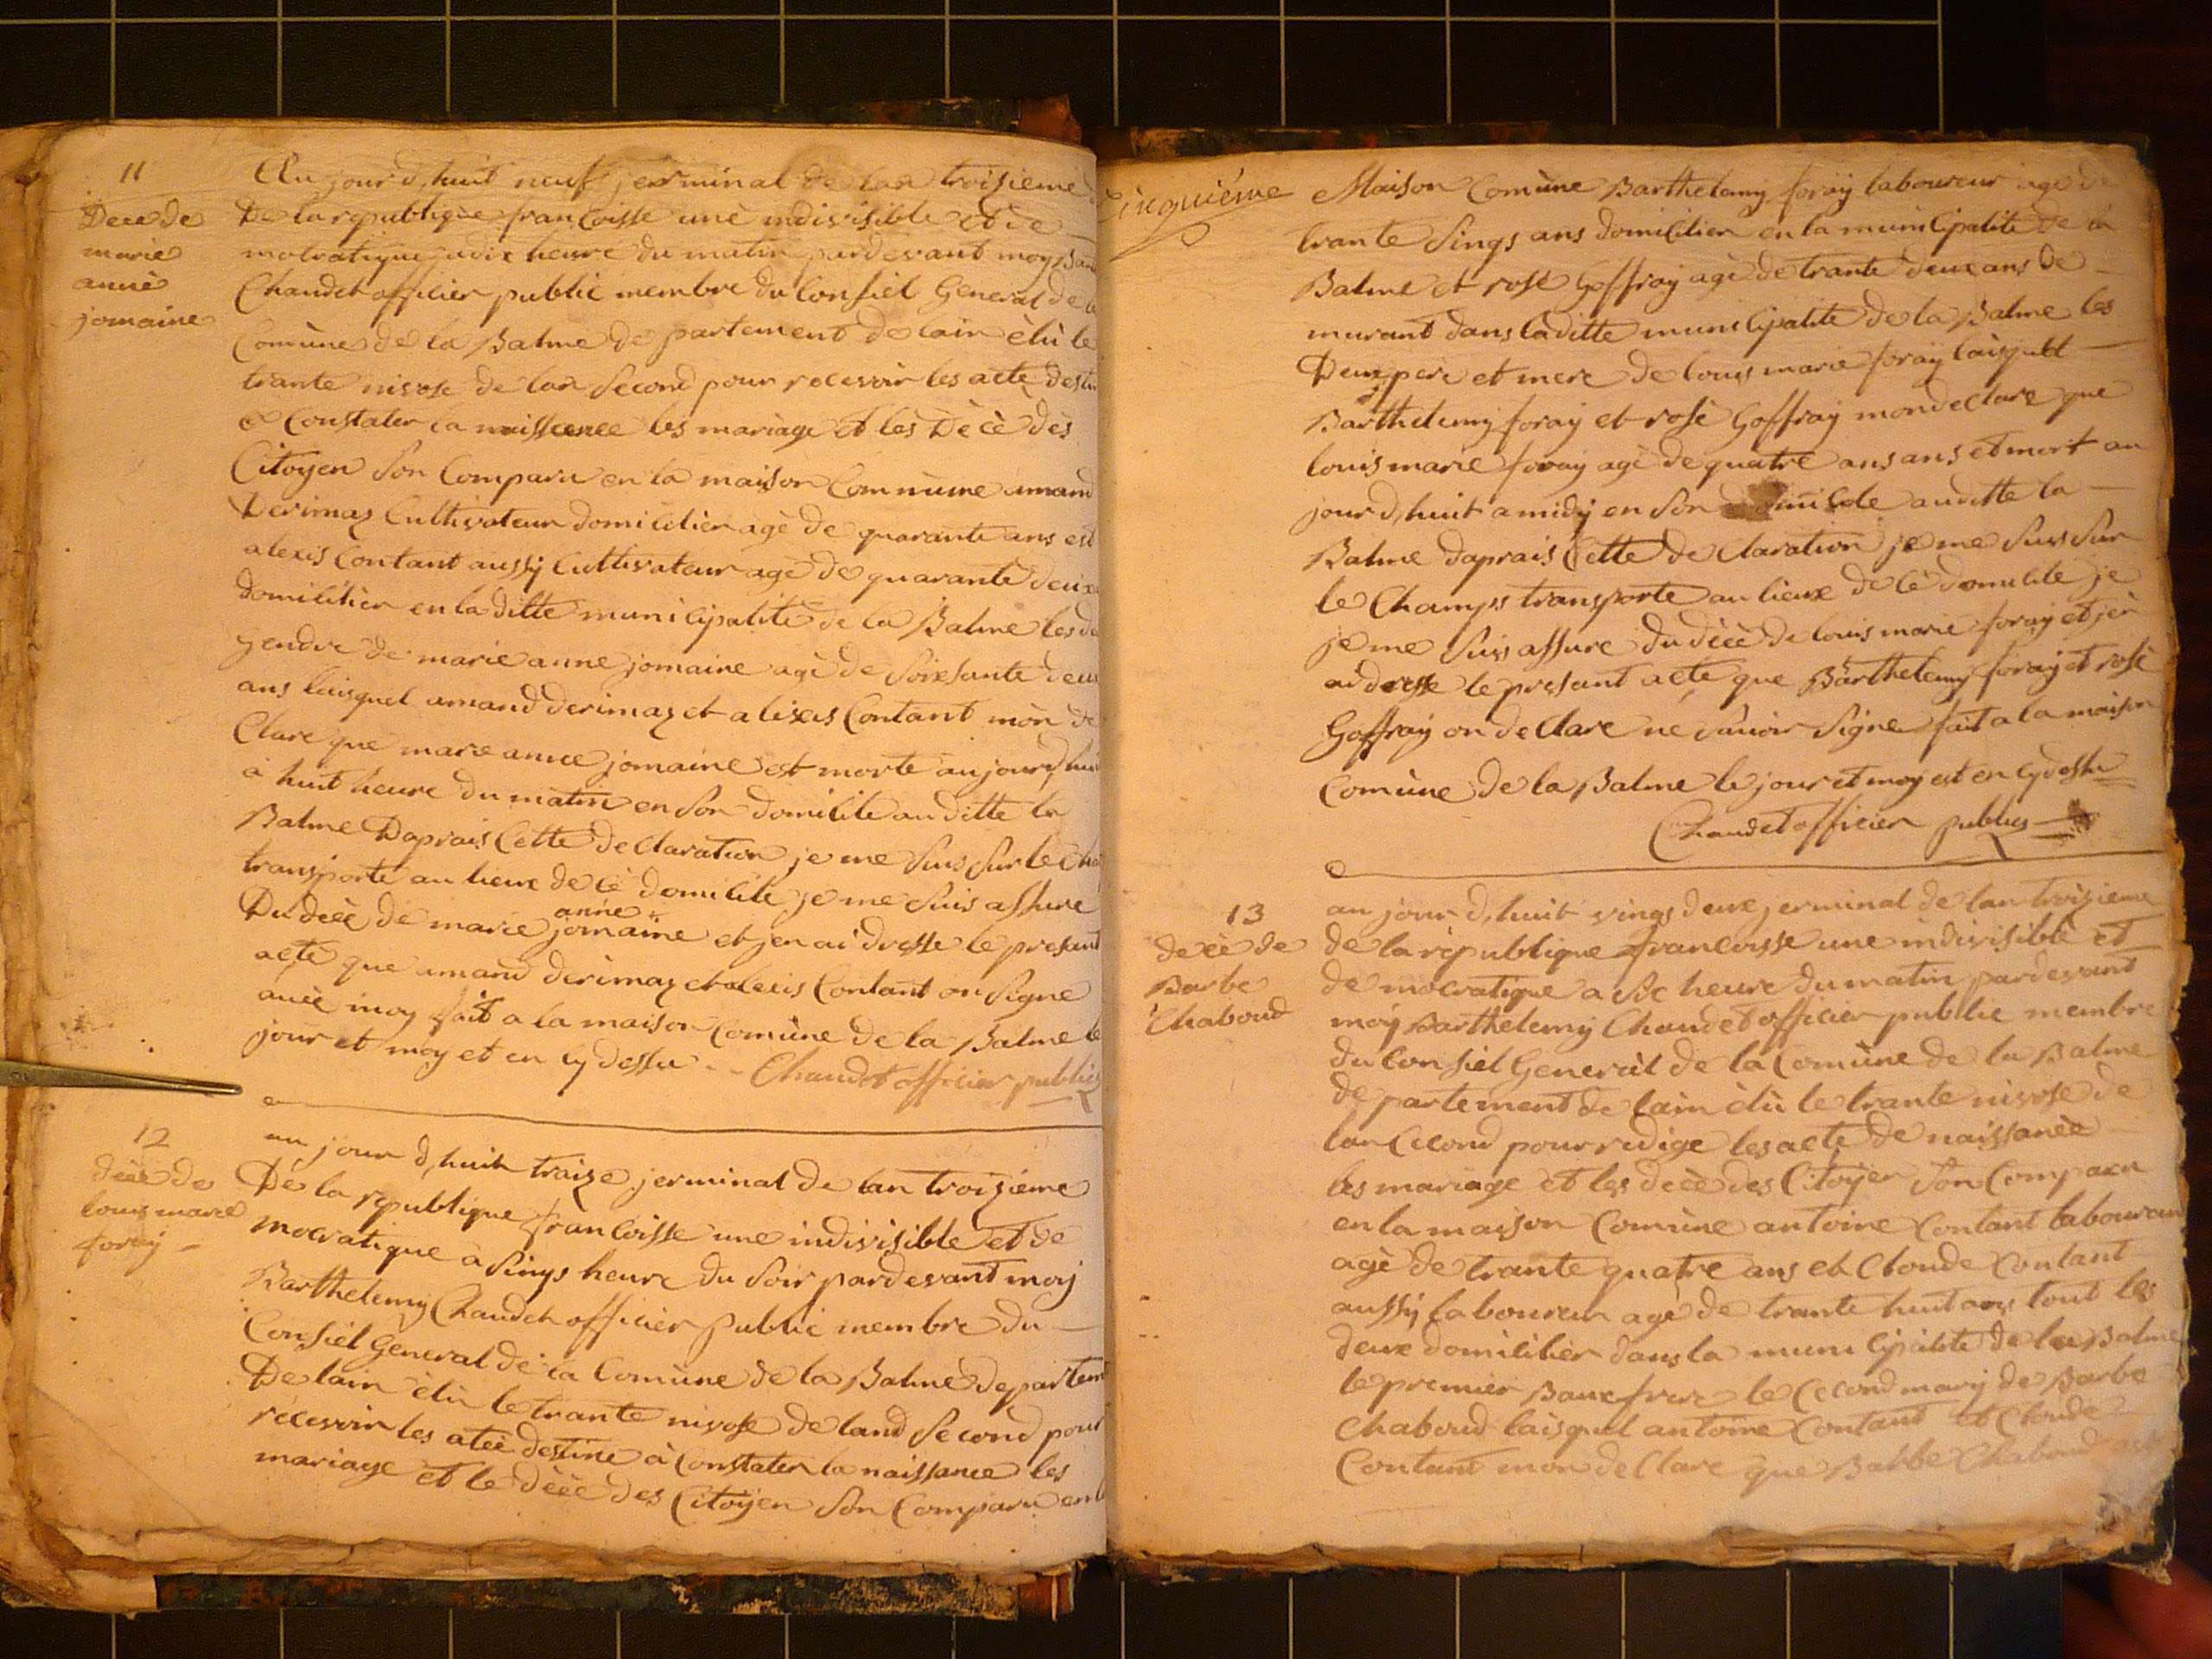 11
Decé de
marie
anné
jomaine
Au jour d, huit neuf jerminal de lan troisieme
De la republique francoisse uné indivisible et de
mocratique a dix heure du matin pardevant moy Bar
Chaudet officier public membre du Consiel General de la
Comùne de la Balme departement de lain èlù le
trante nivose de lan second pour recevoir les acte destin
a Constater la naissence les mariage et les Dècè dès
Citoyen son Comparu en la maison Commune amand
Derimaz Cultivateur domicilier agè de quarante ans est
alexis Contant aussÿ Cultivateur agè de quarante deux
domicilièr en la ditte municipalité de la Balme les de
gendre de marie anne jomaine agè de soixsante deux
ans laisquel amand derimaz et alixeis Contant mòn de
Clare que marie annee jomaine est morte aujourd, hui
à huit heure du matin en son domicile au ditte la
Balme Daprais Cette declaration je me suis sur le cha
transporté au lieux de cè domicile je me suis assure
Du decè de marie anne jomaine et jen ai dresse le presant
acte que amand derimaz et alexis Contant on signe
avèc moy fait a la maison Comùne de la Balme le
jour et moy et en cy dessu -- Chaudet officier public
12
decè de
louis marie
foraÿ -
au jour d, huit traize jerminal de lan troizieme
De la republique francoisse une indivisible et de
mocratique à sings heure du soir pardevant moy
Barthelemy Chaudet officier public membre du
Consièl General de la Comùne de la Balme departem
De lain èlù le trante nivose de land second pour
recevoir les atèe destine à Constater la naissance les
mariage et le dècè des Citoÿen son Comparu en la
Cinquiéme
Maison Comùne Barthelemy foraÿ laboureur age de
trante sings ans domicilier en la municipalité de la
Balme et rose Goffray agè de trante deux ans de
murant dans laditte municipalité de la Balme les
Deux pere et mere de louis marie foraÿ laisquel
Barthelemy foraÿ et rosè Goffraÿ mon declare que
louis marie foraÿ agè de quatre ans ans et mort au
jour d, huit a midÿ en son domicile au ditte la
Balme daprais Cette declaration je me suis sur
le Champs transporte au lieux de cè domicile je
je me suis assure du dècè de louis marie foraÿ et jen
ai dresse le presant acte que Barthelemy foraÿ et rosè
Goffraÿ on declare ne savoir signe fait a la maison
Comùne de la Balme le jour et moy est en cy dessu
Chaudet officier public
13
decè de
Barbe
Chaboud
au jour d, huit vings deux jerminal de lan troizieme
de la rèpublique francoisse une indivisiblè et
democratique a sic heure du matin pardevant
moÿ Barthelemy Chaudet officier public membre
du Consiel Generàl de la Comùne de la Balme
departement de lain élù le trante nivose de
lan Cecond pour redige les acte de naissanèe
les mariage et les decè des Citoÿen son Comparu
en la maison Comùne antoine Contant laboureur
agè de trante quatre ans et Cloude Contant
aussÿ laboureur agé de trante huit ans tout les
deux domicilier dans la municipalité de la Balme
le premier Baux frere le Cecond mary de Barbe
Chaboud laisquel antoine Contant et Cloude
Contant mon declare que Barbe Chaboud